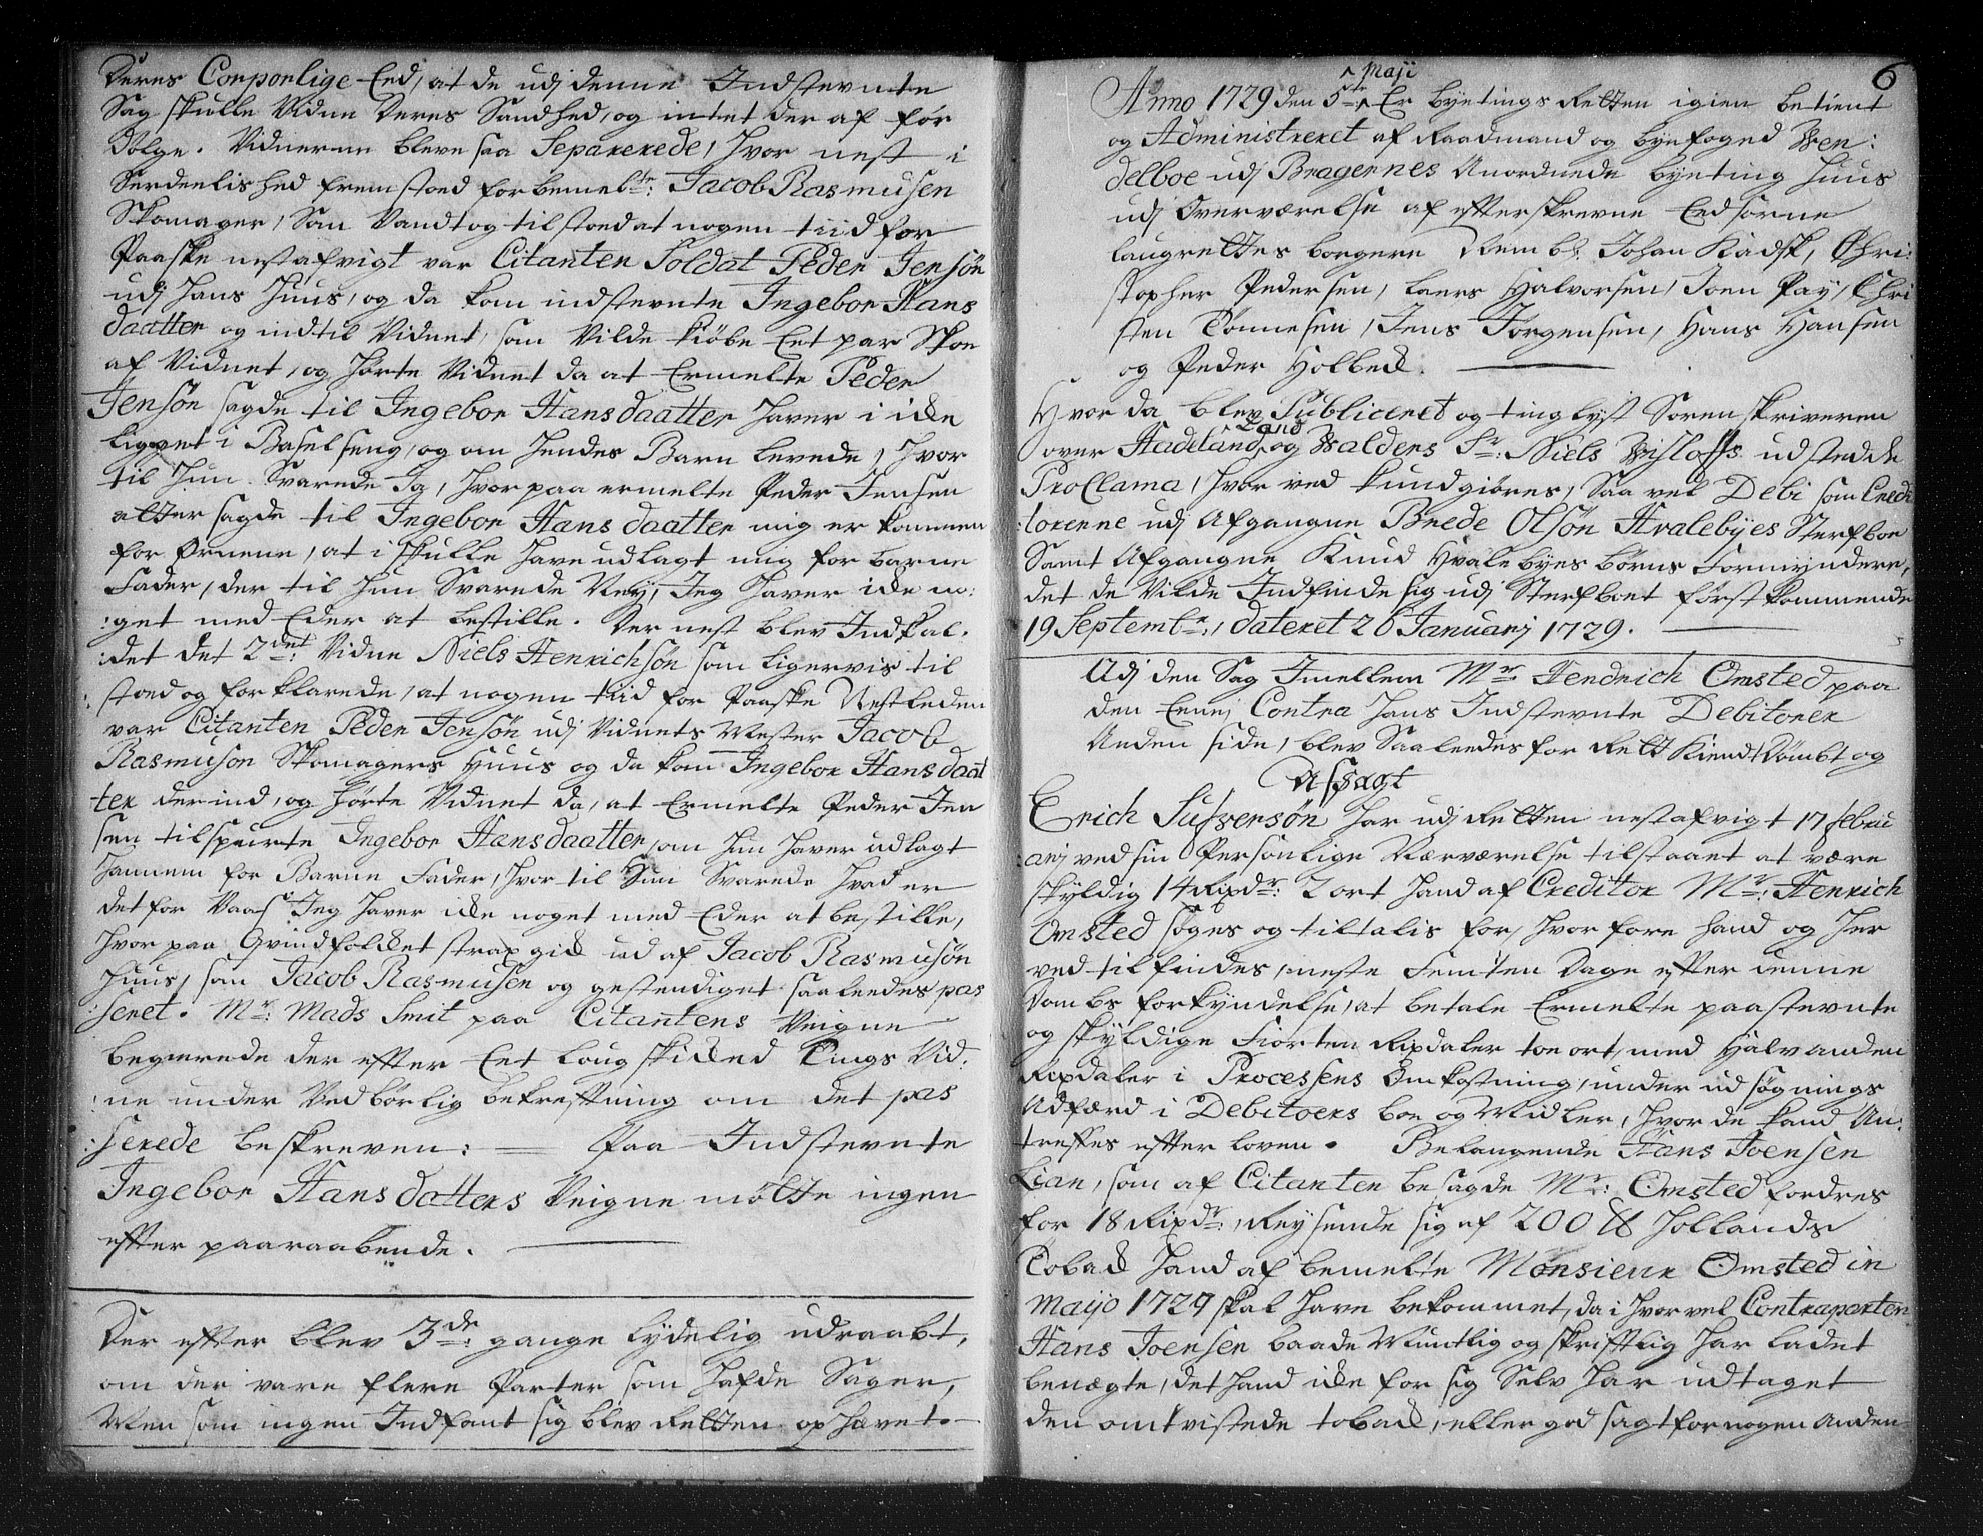 Deres Corporlige Eed, at de udj denne Indstevnte
Sag skulle Vidne Deres Sandhed, og intet der af for
Dølge. Vidnerne bleve saa Separerede, hvor nest i
Serdeelished fremstoed forbemelte: Jacob Rasmusen
Skomager, Som Vandt og tilstoed at nogen tiid for
Paaske nestafvigt var Citanten Soldat Peder Jensøn
udj hans Huus, og da kom indstevnte Ingebor Hans
daatter og indtil Vidnet, som Vilde kiøbe Eet par Skoe
af Vidnet, og hørte Vidnet da at Ermelte Peder
Jensøn sagde til Ingebor Hansdaatter haver i icke
ligget i Baselseng, og om hendes Barn levede, hvor
til hun Svarede Ja, hvorpaa ermelte Peder Jensen
atter sagde til Ingebor Hans daatter mig er kommen
for Ørnene, at i skulle have udlagt mig for barne
Fader, der til hun Svarede Ney, Jeg haver icke no:
:get med Eder at bestille. Der nest blev Indkal:
:det det 2det: Vidne Niels Henrichsøn som ligervis til
:stoed og forklarede, at nogen tiid for Paaske Nestleden
var Citanten Peder Jensøn udj Vidnets Mester Jacob
Rasmuson Skomagers Huus og da kom Ingebor Hansdaat
ter derind, og hørte Vidnet da, at Ermelte Peder Jen
sen tilspurte Ingebor Hansdaatter, om hun haver udlagt
hannem for Barne Fader, hvor til Hun Svarede hvad er
det for Vaas Jeg haver icke noget med Eder at bestille,
hvor paa Qvindfolcket strax gick ud af Jacob Rasmusøn
huus, som Jacob Rasmusen og gestendiget saaleedes pas
:seret. Mr: Mads Smit paa Citantens Veigne
begierede der efter Eet Lougskicked Tings Vid:
:ne under Vedbørlig bekreftning om det pas
:serede beskreven: — Paa Indstevnte
Ingebor Hans datters Veigne mølte ingen
efter paaraabende.
Der efter blev 3de: gange lydelig udraabt,
om der vare flere Parter som hafde Sager,
Men som ingen Indfant sig blev Retten ophævet.
6
Maji
Anno 1729 den 5te Er byetings Retten igien betient
og Administreret af Raadmand og byefoged Wen:
delboe udj Bragernes Anordnede byeting huus
udj Overværelse af efterskrevne Eedsorne
laugrettes borgere Nembl: Johan Kadsk, Chri:
stopher Pedersen, Laers Halvorsen, Joen Pay, Chri
sten Tønnesen, Jens Jørgensen, Hans Hansen
og Peder Holbeck.
Hvor da blev Publiceret og tinglyst Sorenskriveren
Land
over Hadeland og Walders Sr: Niels Wisloffs udstedde
Proclama, hvor ved kundgiøres, Saa vel Debi som Credi
:torerne udj Afgangne Brede Olsøn Hvalebyes Sterfboe
Samt Afgangne Knud Hvalebyes børns Formyndere,
det de Vilde Indfinde sig udj Sterfboet førstkommende
19 Septembr:, dateret 26 Januarj 1729.
Udj den Sag Imellem Mr: Hendrich Omsted paa
den Eene, Contra hans Indstevnte Debitorer
Anden side, blev Saaleedes for Rett Kiendt Dømbt og
Afsagt
Erich Sufversøn har udj Retten nestafvigt 17 Febru
:arj ved sin Personlige Nærværelse tilstaaet at være
skyldig 14 Rixdr: 2 ort hand af Creditor Mr: Henrich
Omsted søges og tiltalis for, hvor fore hand og her
ved tilfindes, neste Femten Dage efter denne
Dombs forkyndelse, at betale Ermelte paastevnte
og skyldige Fiorten Rixdaler toe ort, med Halvanden
Rixdaler i Processens Omkostning, under udsøgnings
Adfærd i Debitoers boe og Midler, hvor de kand An:
treffes efter loven. Belangende Hans Joensen
Lian, som af Citanten besagde Mr: Omsted fordres
for 18 Rixdr:, Reysende sig af 200 ℔ hollands
Toback hand af bemelte Monsieur Omsted in
Mayo 1727 skal have bekommet, da i hvor vel Contraparten
Hans Joensen baade Mundtlig og skriftlig har ladet
benægte, det hand icke for sig Selv har udtaget
den omtvistede toback, eller god sagt for nogen Anden